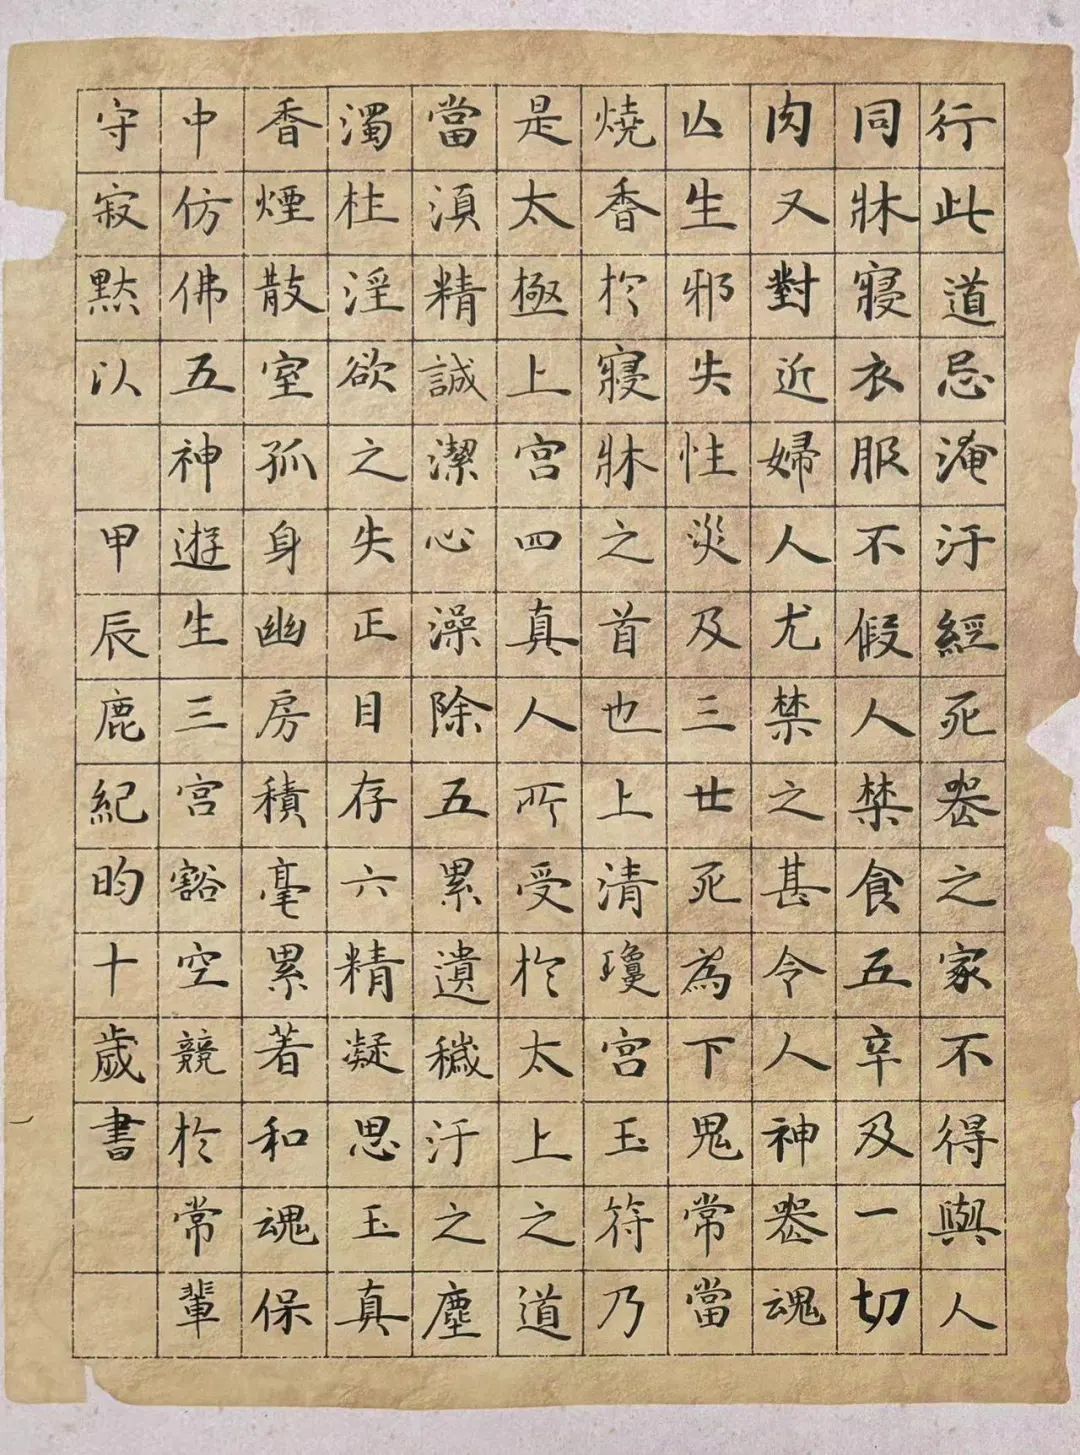 行此道忌淹汙經死喪之家不得與人
同牀寢衣服不假人禁食五辛及一切
肉又對近婦人尤禁之甚令人神喪魂
亾生邪失性災及三世死為下鬼常當
燒香於寢牀之首也上清瓊宮玉符乃
是太極上宮四真人所受於太上之道
當須精誠潔心澡除五累遺穢汙之塵
濁杜淫欲之失正目存六精凝思玉真
香煙散室孤身幽房積毫累著和魂保
中仿佛五神遊生三宮豁空競於常輩
守寂默以 甲辰鹿紀昀十歲書